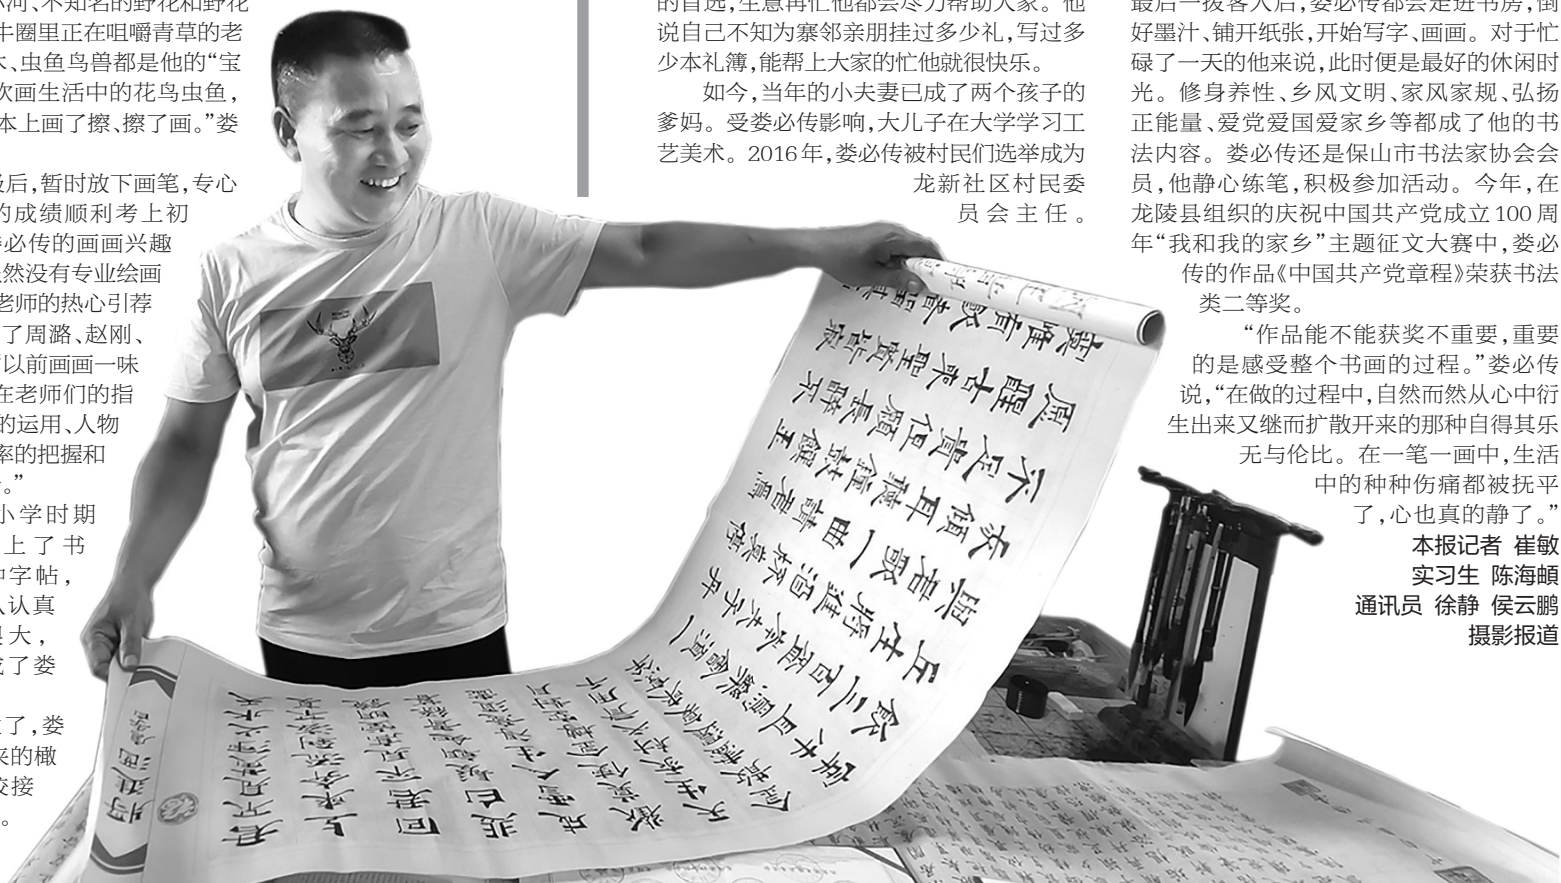 小河、不知名的野花和野花
牛圈里正在咀嚼青草的老
木、虫鱼鸟兽都是他的“宝
欢画生活中的花鸟虫鱼，
本上画了擦、擦了画。”娄
级后，暂时放下画笔，专心
的成绩顺利考上初
娄必传的画画兴趣
虽然没有专业绘画
老师的热心引荐
了周潞、赵刚、
以前画画一味
在老师们的指
的运用、人物
率的把握和
。”
小学时期
上了书
字帖，
认真
大，
成了娄
了，娄
来的橄
交接
。
的首选，生意再忙他都会尽力帮助大家。他
说自己不知为寨邻亲朋挂过多少礼，写过多
少本礼簿，能帮上大家的忙他就很快乐。
如今，当年的小夫妻已成了两个孩子的
爹妈。受娄必传影响，大儿子在大学学习工
艺美术。2016年，娄必传被村民们选举成为
龙新社区村民委
员会主任。
最后一拨客人后，娄必传都会走进书房，倒
好墨汁、铺开纸张，开始写字、画画。对于忙
碌了一天的他来说，此时便是最好的休闲时
光。修身养性、乡风文明、家风家规、弘扬
正能量、爱党爱国爱家乡等都成了他的书
法内容。娄必传还是保山市书法家协会会
员，他静心练笔，积极参加活动。今年，在
龙陵县组织的庆祝中国共产党成立100周
年“我和我的家乡”主题征文大赛中，娄必
传的作品《中国共产党章程》荣获书法
类二等奖。
“作品能不能获奖不重要，重要
的是感受整个书画的过程。”娄必传
说，“在做的过程中，自然而然从心中衍
生出来又继而扩散开来的那种自得其乐
无与伦比。在一笔一画中，生活
中的种种伤痛都被抚平
了，心也真的静了。”
本报记者 崔敏
实习生 陈海頔
通讯员 徐静 侯云鹏
摄影报道
將進酒
飲三百杯岑夫子丹
丘生將進酒杯莫停
與君歌一曲請君爲
我傾耳聽鐘鼓饌玉
不足貴但願長醉不
願醒古來聖賢皆寂